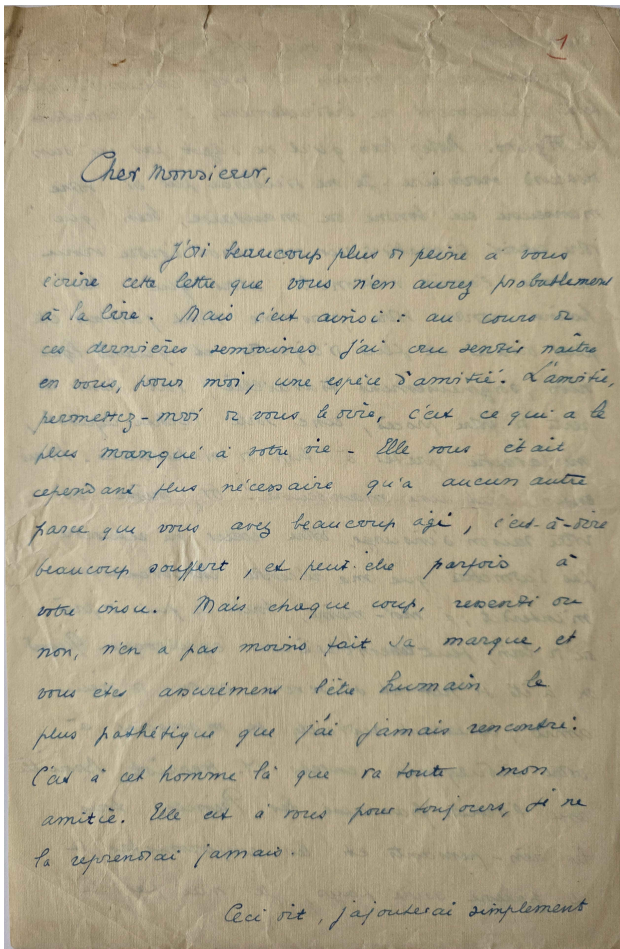 1
Cher Monsieur,
J'ai beaucoup plus de peine à vous
écrire cette lettre que vous n'en aurez probablement
à la lire. Mais c'est ainsi : au cours de
ces dernières semaines j'ai cru sentir naître
en vous, pour moi, une espèce d'amitié. L'amitié,
permettez-moi de vous le dire, c'est ce qui a le
plus manqué à votre vie - Elle vous était
cependant plus nécessaire qu'à aucun autre
parce que vous avez beaucoup agi, c'est-à-dire
beaucoup souffert, et peut-être parfois à
votre insu. Mais chaque coup, ressenti ou
non, n'en a pas moins fait sa marque, et
vous êtes assurément l'être humain le
plus pathétique que j'ai jamais rencontré.
C'est à cet homme là que va toute mon
amitié. Elle est à vous pour toujours, je ne
la reprendrai jamais.
Ceci dit, j'ajouterai simplement